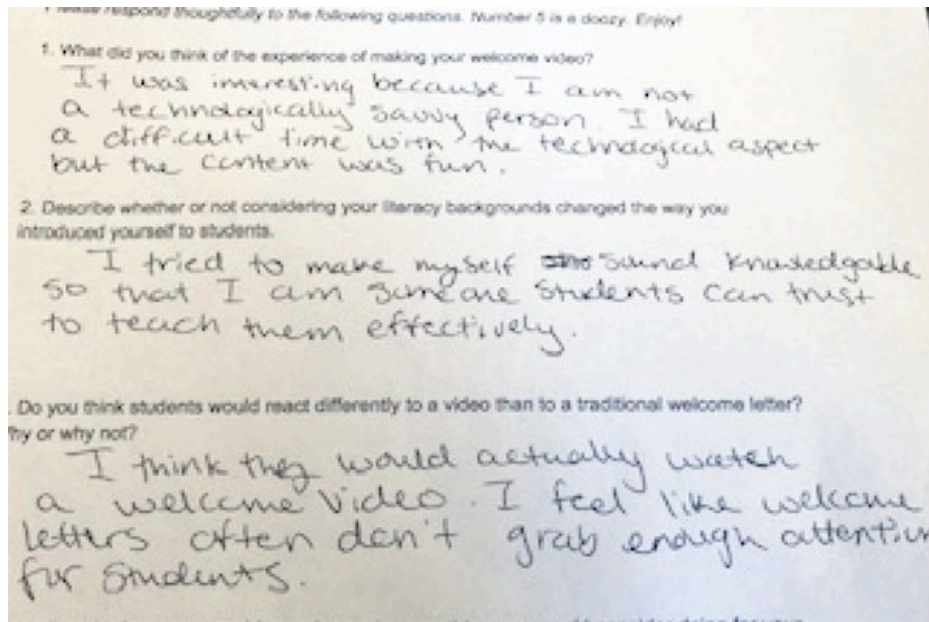 Please respond thoughtfully to the following questions. Number 5 is a doozy. Enjoy!
1. What did you think of the experience of making your welcome video?
It was interesting because I am not
a technologically savvy person I had
a difficult time with the technological aspect
but the content was fun.
2. Describe whether or not considering your literacy backgrounds changed the way you
introduced yourself to students.
I tried to make myself sound knowledgable
so that I am someone students can trust
to teach them effectively.
. Do you think students would react differently to a video than to a traditional welcome letter?
hy or why not?
I think they would actually watch
a welcome video. I feel like welcome
letters often don't grab enough attention
for students.